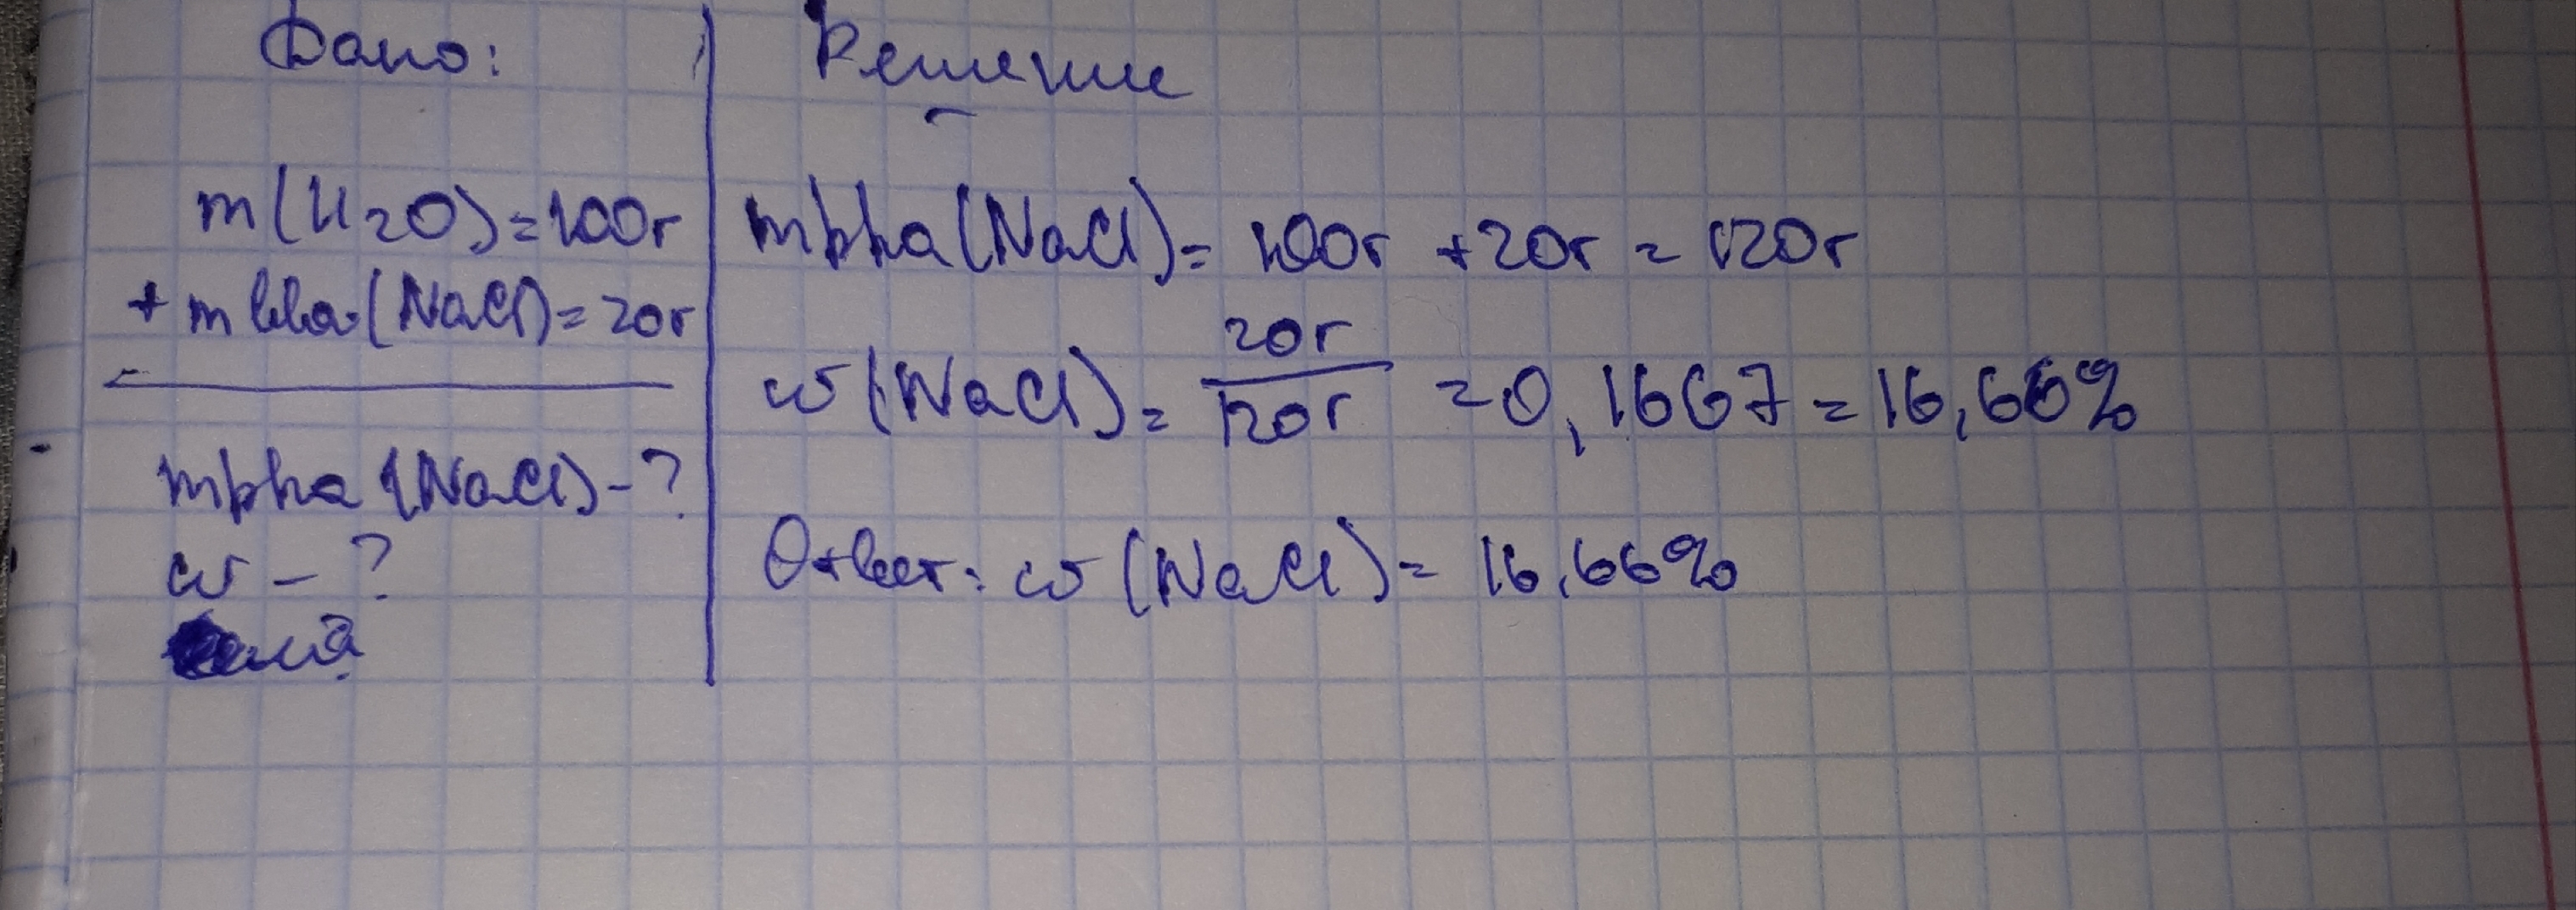 Дано:
m(H2O)=100г
+ m в-ва(NaCl)=20г
m р-ра (NaCl)-?
w - ?
Решение
m р-ра (NaCl)= 100г +20г = 120г
w (NaCl)= 20г/120г =0,1667=16,66%
Ответ: w (NaCl)= 16,66%